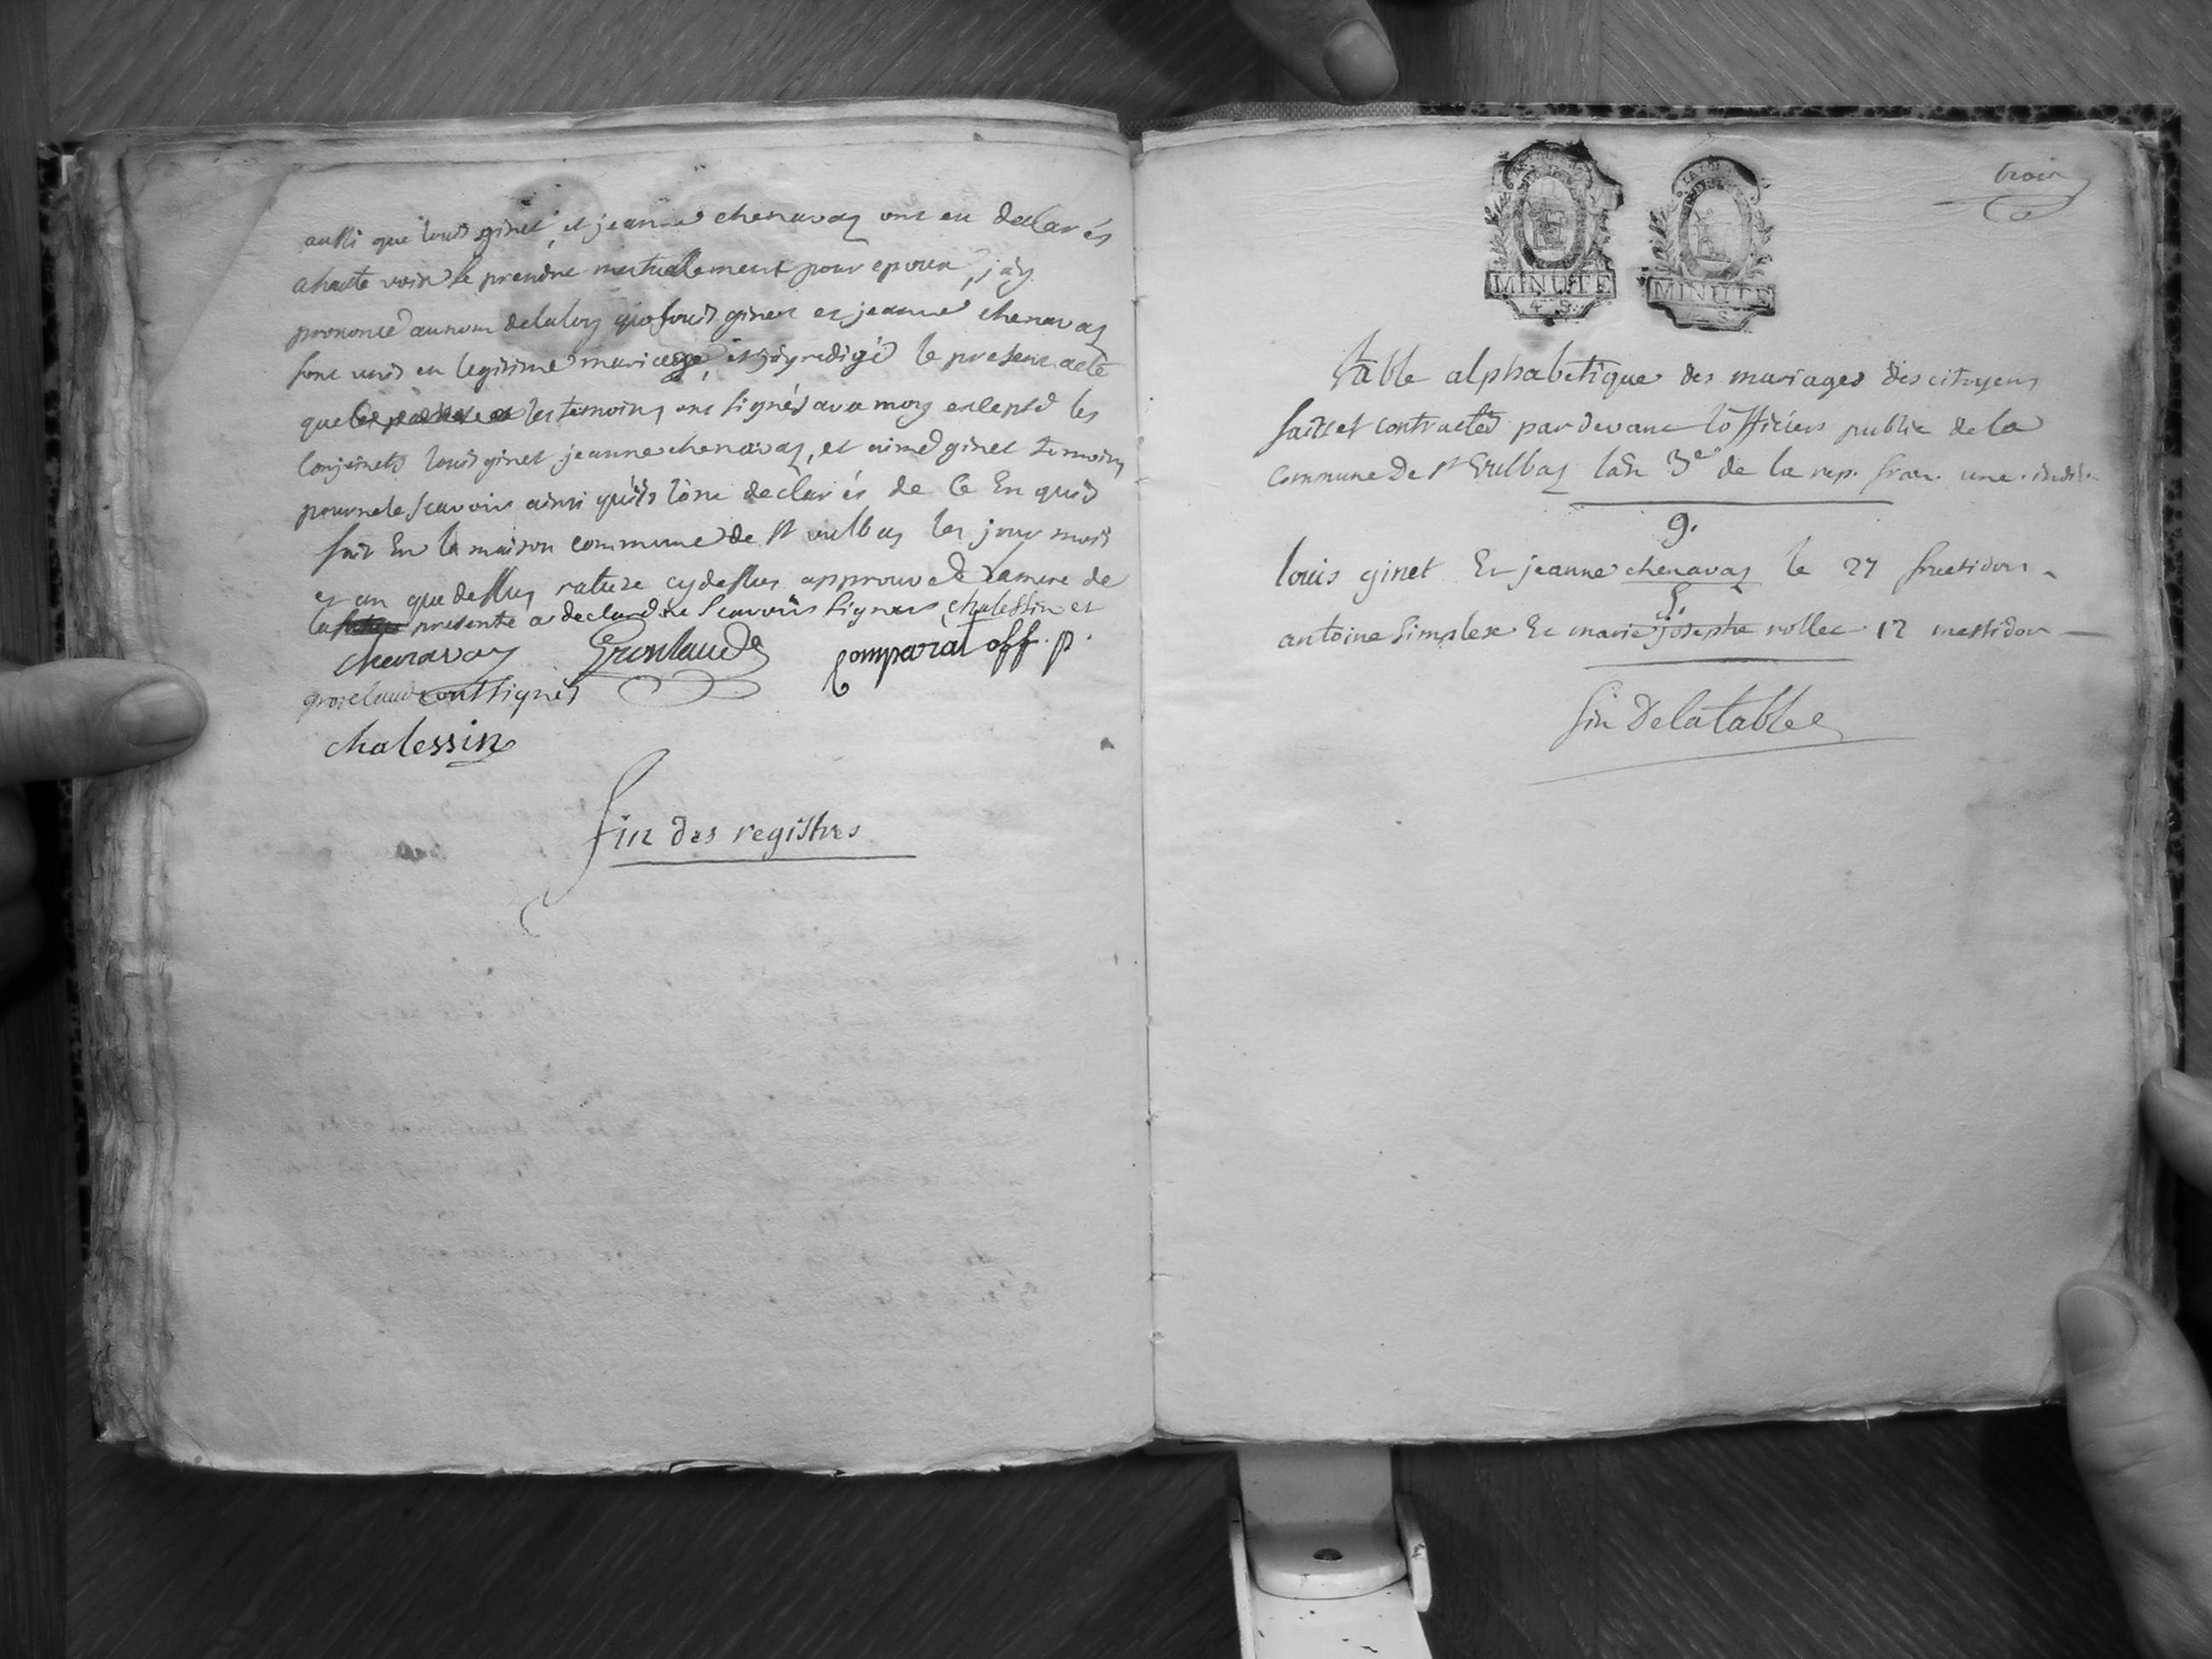 aussi que louis ginet, et jeanne chenavaz ont eu declarés
a haute voix se prendre mutuellement pour epoux, j'ay
prononcé au nom de la loy que louis ginet et jeanne chenavaz
sont unis en legitime mariage, et j'ay redigé le present acte
que les temoins ont signés avec moy excepté les
conjoints louis ginet jeanne chenavaz, et aimé ginet temoins
pour ne le scavoir ainsi qu'ils l'ont declarés de ce Enquis
fait En la maison commune de st vulbas les jour mois
et an que dessus rature cy dessus approuvé la mere de
la presente a declaré ne scavoir signer chalessin et
chenavaz Grosclaude Comparat off. p.
grosclaude ont signés
chalessin
fin des registres
trois
MINUTE
4. S.
MINUTE
4. S.
table alphabetique des mariages des citoyens
faits et contractés pardevant l'officier public de la
commune de st Vulbaz l'an 3e de la rep. fran. une. indi.
g.
louis ginet Et jeanne chenavaz le 27 fructidor
S.
antoine simplex Et marie josephe rollet 12 messidor
fin de la table